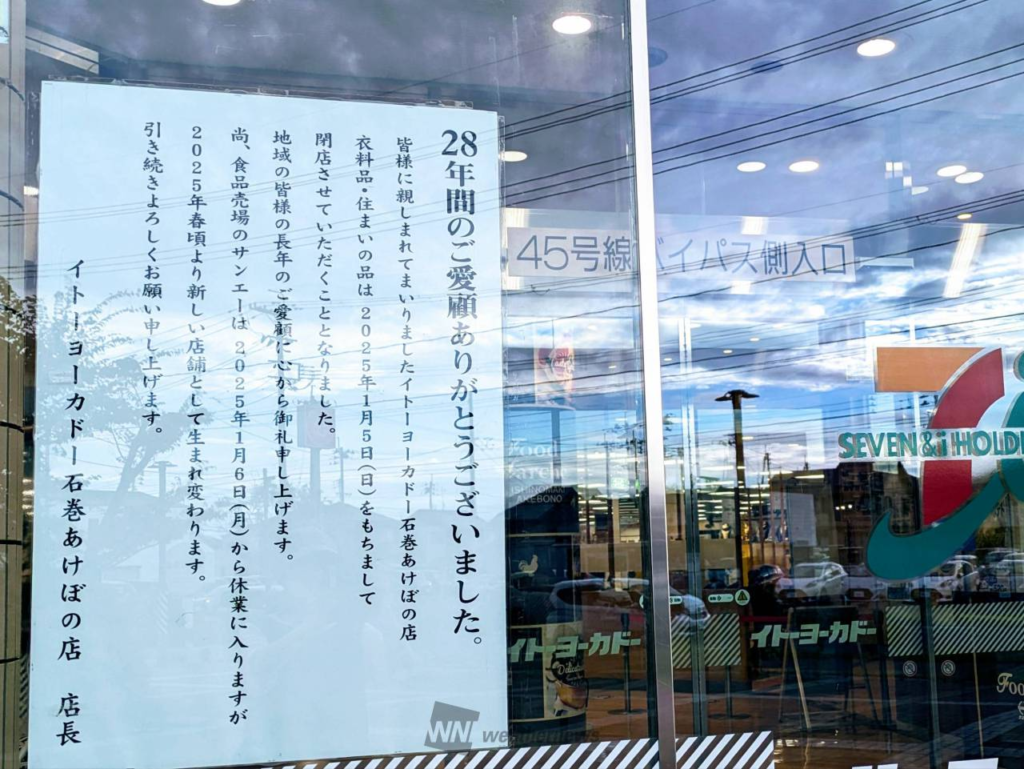 28年間のご愛顧ありがとうございました。
皆様に親しまれてまいりましたイトーヨーカドー石巻あけぼの店
衣料品・住まいの品は 2025年1月5日(日)をもちまして
閉店させていただくこととなりました。
地域の皆様の長年のご愛顧に心から御礼申し上げます。
尚、食品売場のサンエーは 2025年1月6日(月)から休業に入りますが
2025年春頃より新しい店舗として生まれ変わります。
引き続きよろしくお願い申し上げます。
イトーヨーカドー石巻あけぼの店 店長
45号線バイパス側入口
SEVEN&i HOLDI
Food
ISHINOMAKI
AKEBONO
イトーヨーカドー
イトーヨーカドー
Foo
WN